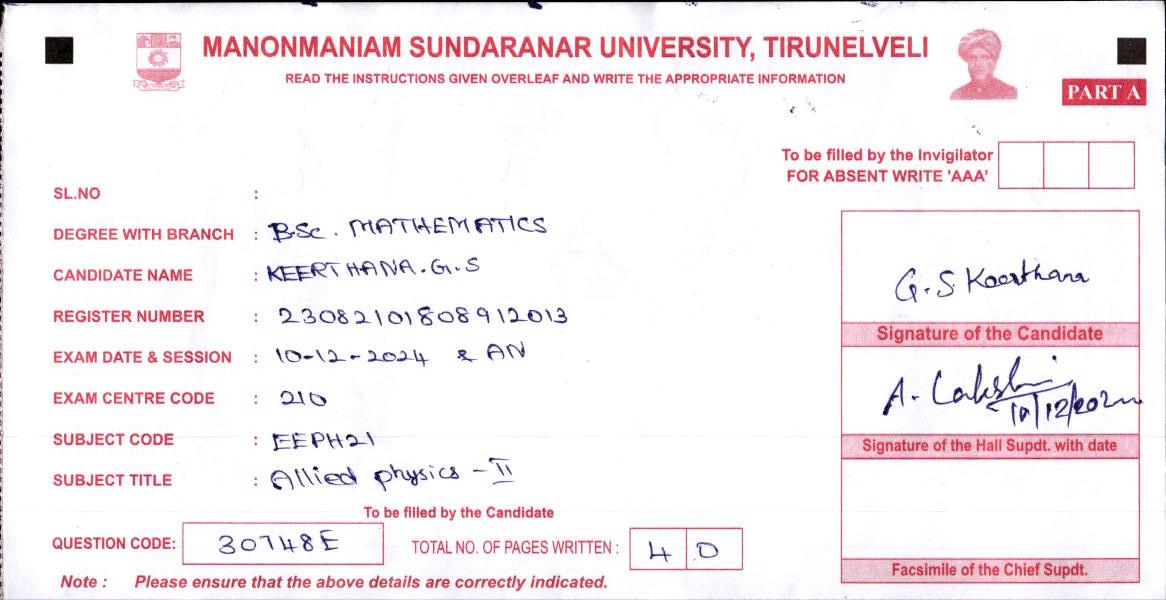 MANONMANIAM SUNDARANAR UNIVERSITY, TIRUNELVELI
READ THE INSTRUCTIONS GIVEN OVERLEAF AND WRITE THE APPROPRIATE INFORMATION
PART A
To be filled by the Invigilator
FOR ABSENT WRITE 'AAA'
SL.NO :
DEGREE WITH BRANCH : B.Sc. MATHEMATICS
CANDIDATE NAME : KEERTHANA.G.S
REGISTER NUMBER : 23082101808912013
EXAM DATE & SESSION : 10-12-2024 & AN
EXAM CENTRE CODE : 210
SUBJECT CODE : EEPH21
SUBJECT TITLE : Allied physics - II
To be filled by the Candidate
QUESTION CODE: 30748E TOTAL NO. OF PAGES WRITTEN : 40
Note : Please ensure that the above details are correctly indicated.
G.S Keerthana
Signature of the Candidate
A. Lakshmi
10/12/2024
Signature of the Hall Supdt. with date
Facsimile of the Chief Supdt.